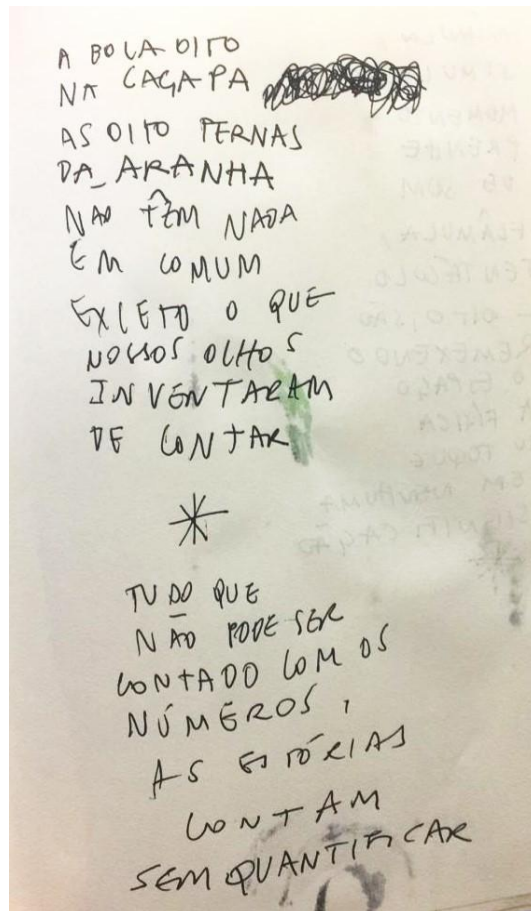 A BOLA OITO
NA CAÇAPA
AS OITO PERNAS
DA ARANHA
NÃO TÊM NADA
EM COMUM
EXCETO O QUE
NOSSOS OLHOS
INVENTARAM
DE CONTAR
*
TUDO QUE
NÃO PODE SER
CONTADO COM OS
NÚMEROS,
AS ESTÓRIAS
CONTAM
SEM QUANTIFICAR